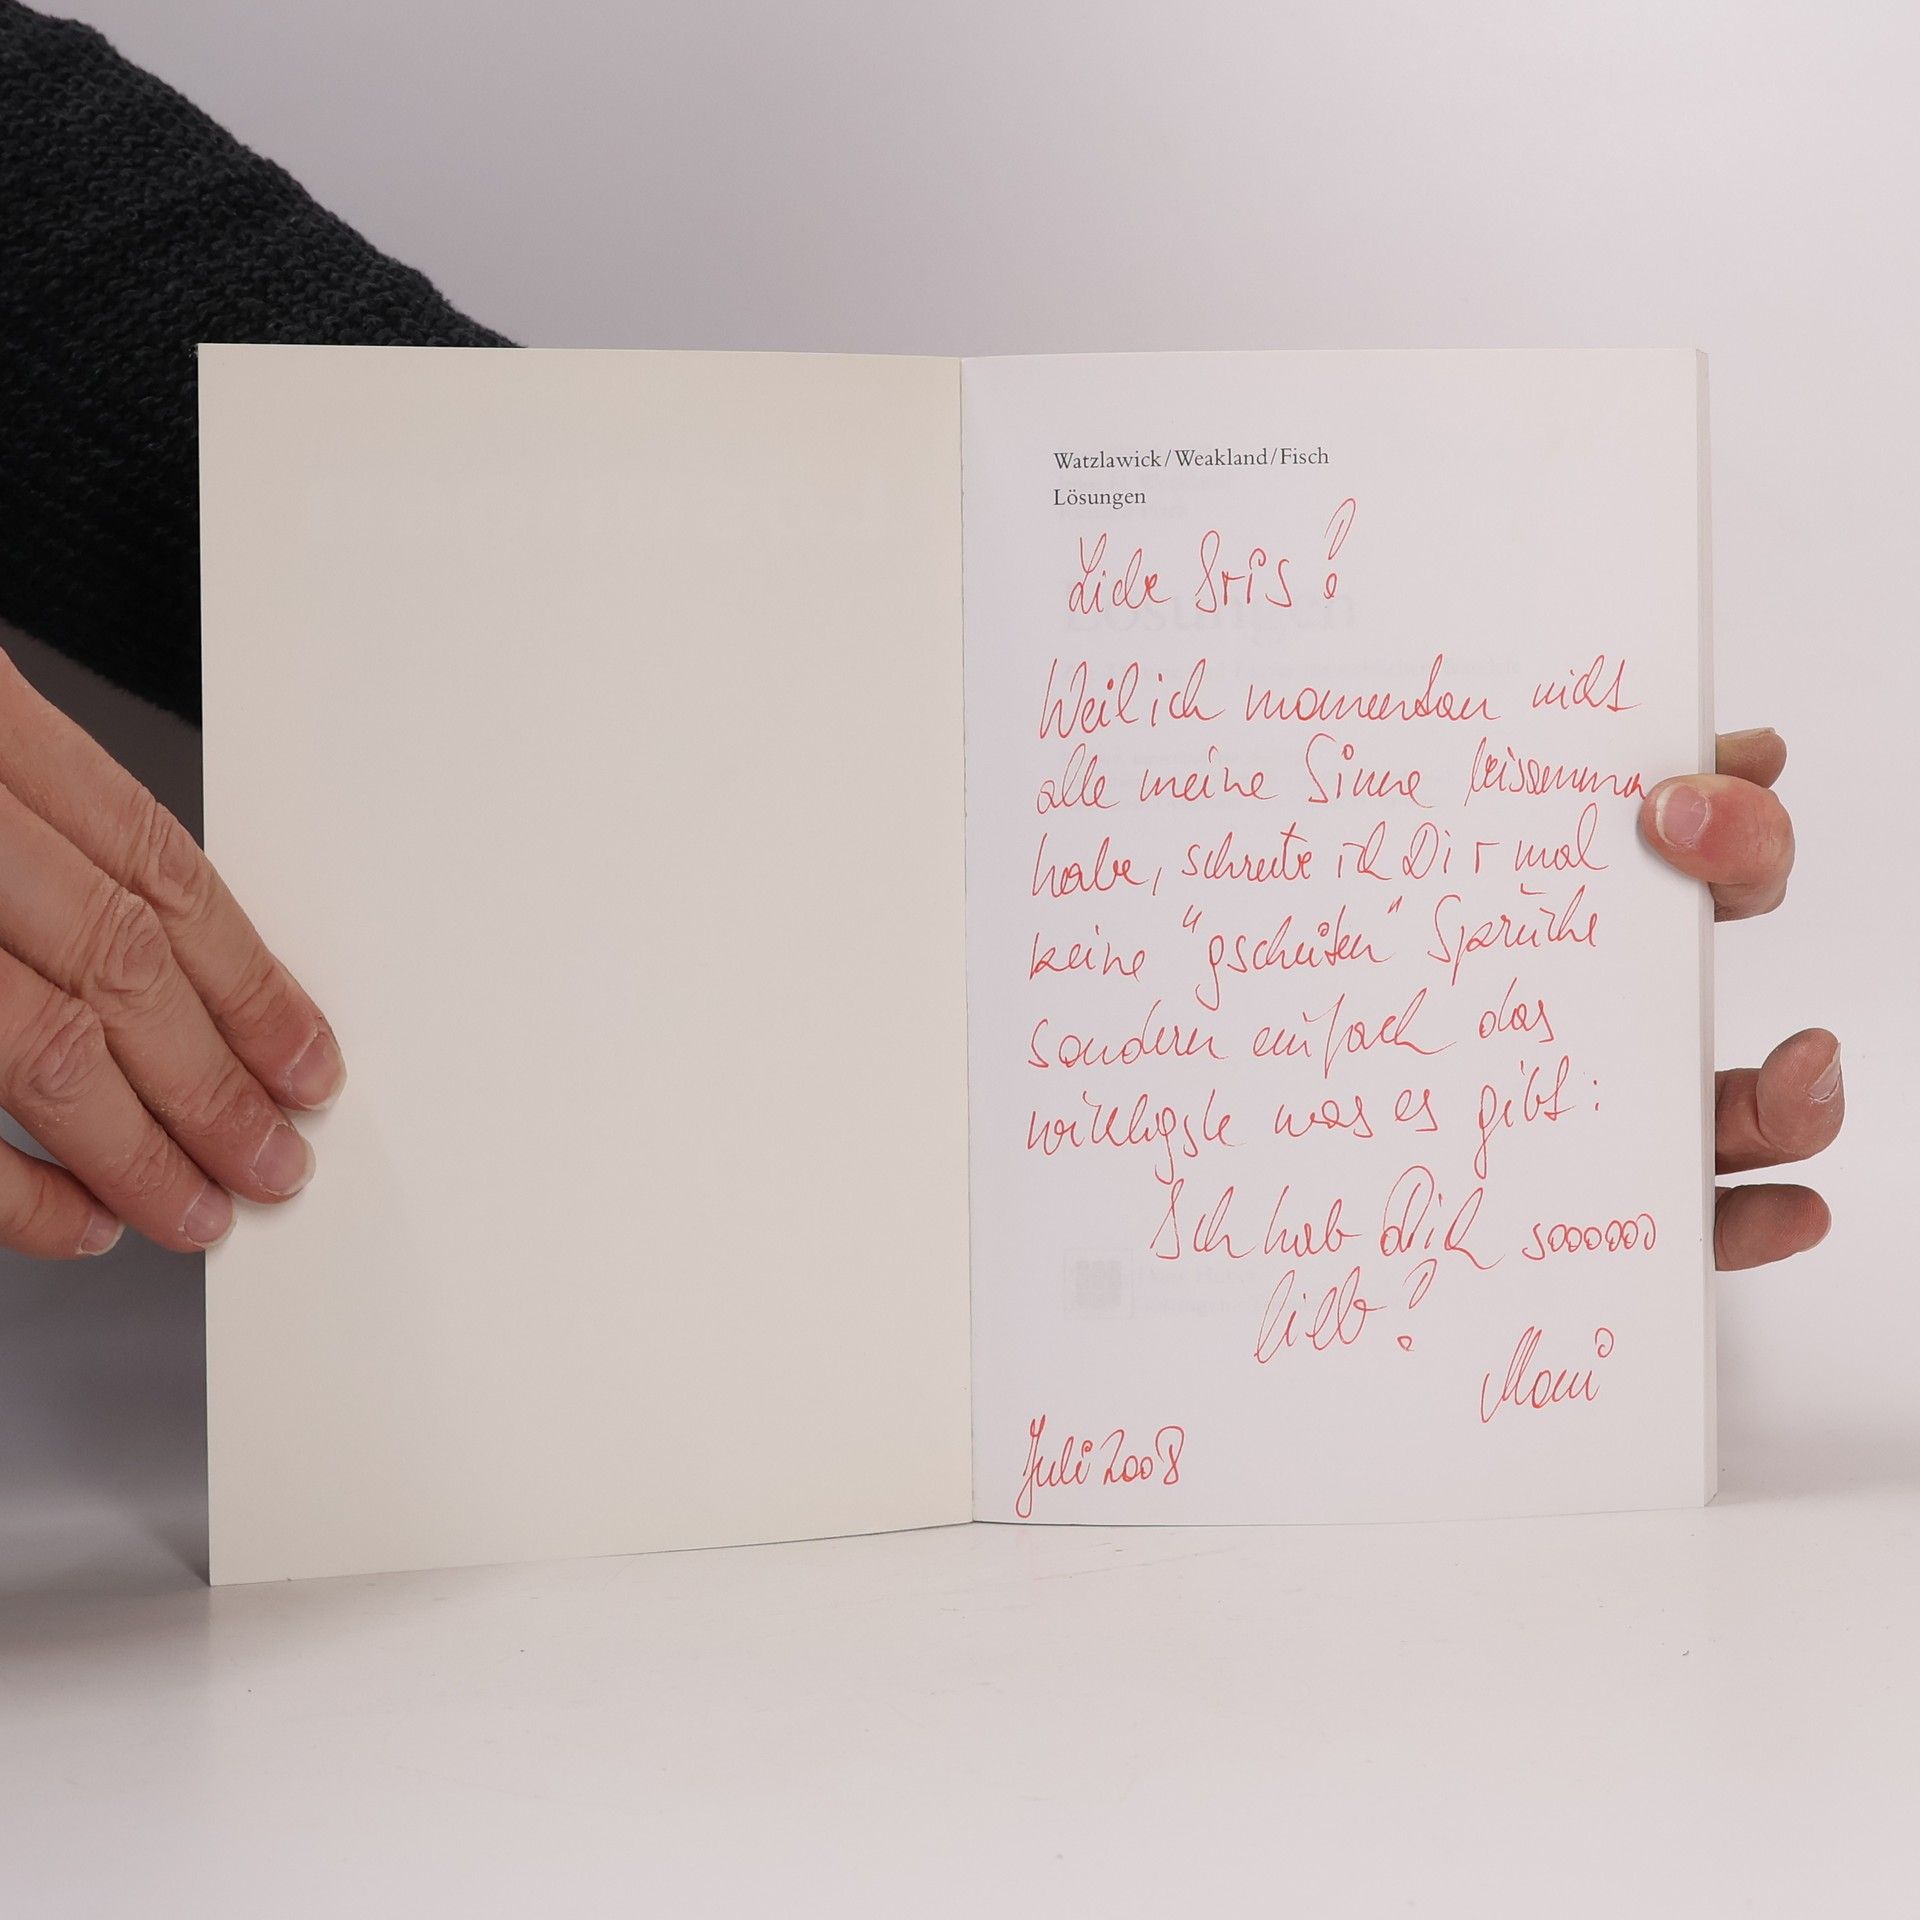 Watzlawick/Weakland/Fisch
Lösungen
Liebe Iris!
Weil ich momentan nicht
alle meine Sinne beisamma
habe, schreibe ich Dir mal
keine "gscheiten" Sprüche
sondern einfach das
wichtigste was es gibt:
Ich hab Dich soooooo
lieb!
Moni
Juli 2008